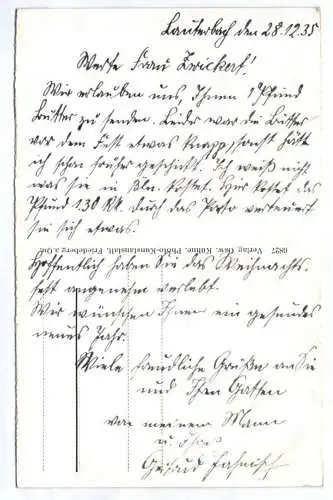 Lauterbach den 28.12.35
Werte Frau Zwickert!
Wir erlauben uns, Ihnen 1 Pfund
Butter zu senden. Leider war die Butter
vor dem Fest etwas knapp, sonst hätte
ich schon früher geschickt. Ich weiß nicht
was sie in Bln. kostet. Hier kostet das
Pfund 1.30 RM. durch das Porto verteuert
sie sich etwas.
6827 Verlag Gebr. Kühne, Photo-Kunstanstalt, Friedeberg a. Qu.
Hoffentlich haben Sie das Weihnachts-
fest angenehm verlebt.
Wir wünschen Ihnen ein gesundes
neues Jahr.
Viele freundliche Grüße an Sie
und Ihren Gatten
von meinem Mann
u. Ihre